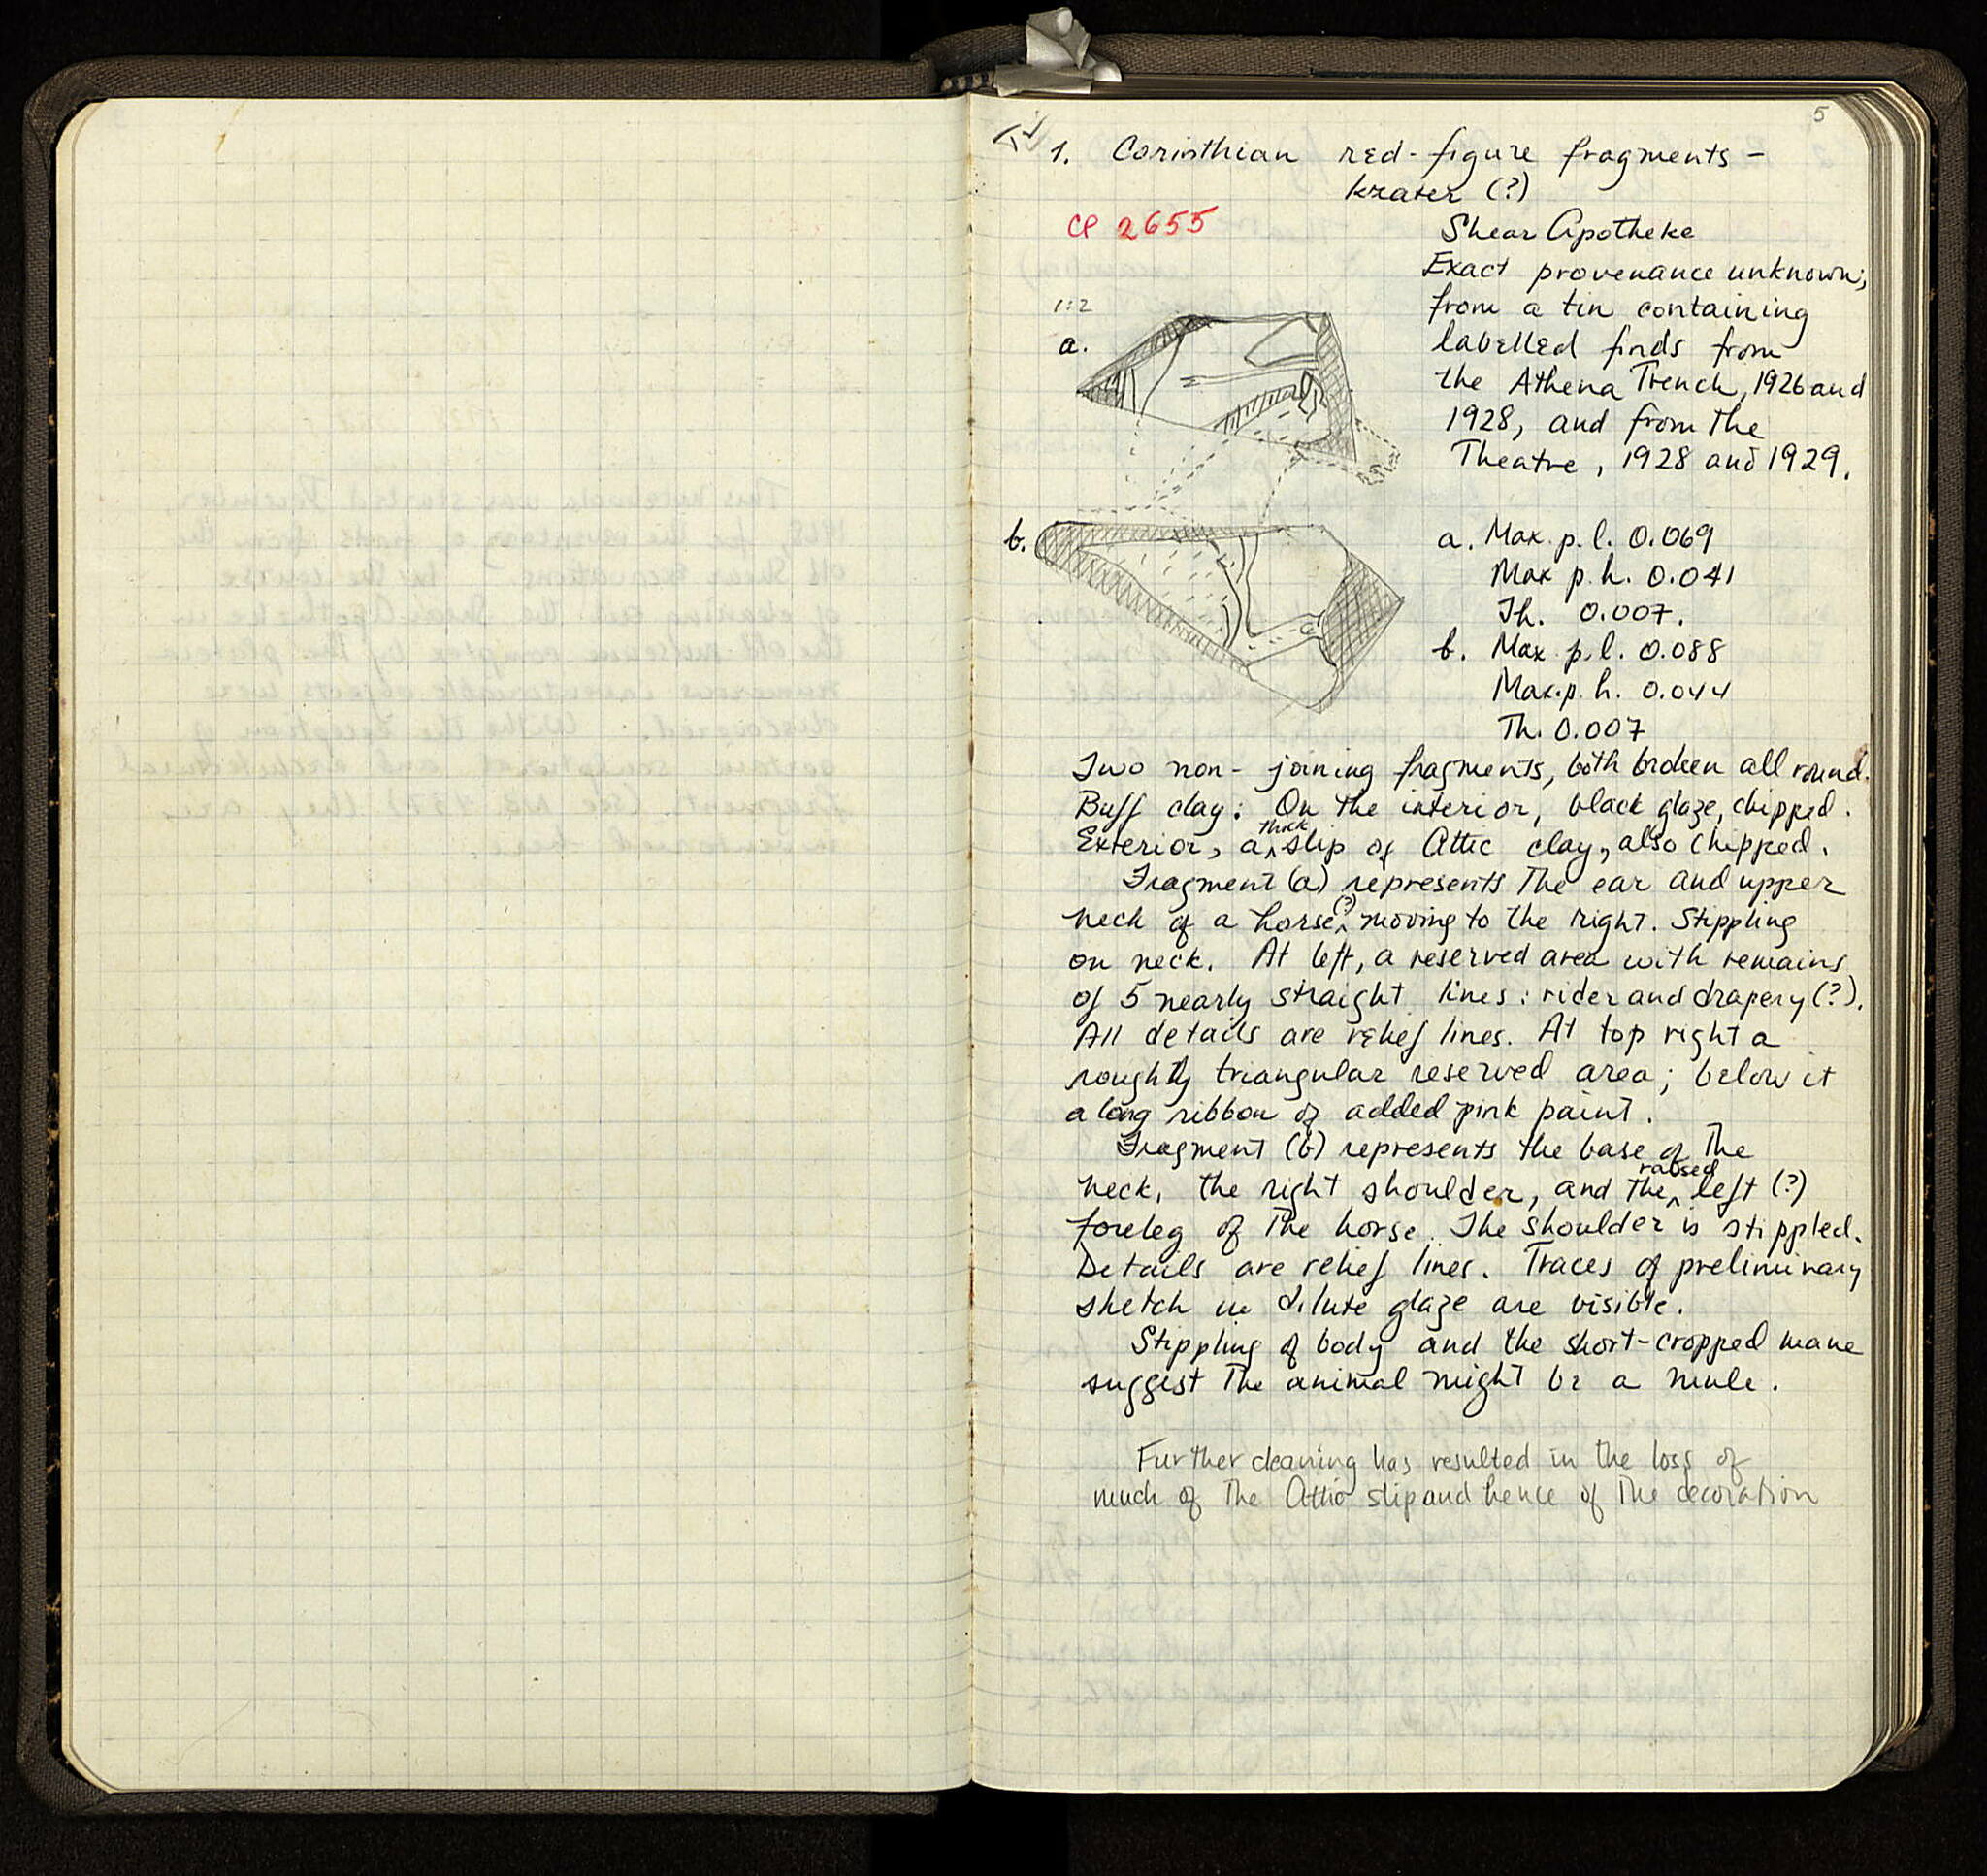 5
1. Corinthian red-figure fragments -
krater (?)
CP 2655
Shear Apotheke
Exact provenance unknown;
from a tin containing
labelled finds from
the Athena Trench, 1926 and
1928, and from the
Theatre, 1928 and 1929.
1:2
a.
b.
a. Max. p. l. 0.069
Max p. h. 0.041
Th. 0.007.
b. Max. p. l. 0.088
Max. p. h. 0.044
Th. 0.007
Two non-joining fragments, both broken all round.
Buff clay: On the interior, black glaze, chipped.
Exterior, a thick slip of Attic clay, also chipped.
Fragment (a) represents the ear and upper
neck of a horse (?) moving to the right. Stippling
on neck. At left, a reserved area with remains
of 5 nearly straight lines: rider and drapery (?).
All details are relief lines. At top right a
roughly triangular reserved area; below it
a long ribbon of added pink paint.
Fragment (b) represents the base of the
neck, the right shoulder, and the raised left (?)
foreleg of the horse. The shoulder is stippled.
Details are relief lines. Traces of preliminary
sketch in dilute glaze are visible.
Stippling of body and the short-cropped mane
suggest the animal might be a mule.
Further cleaning has resulted in the loss of
much of the Attic slip and hence of the decoration